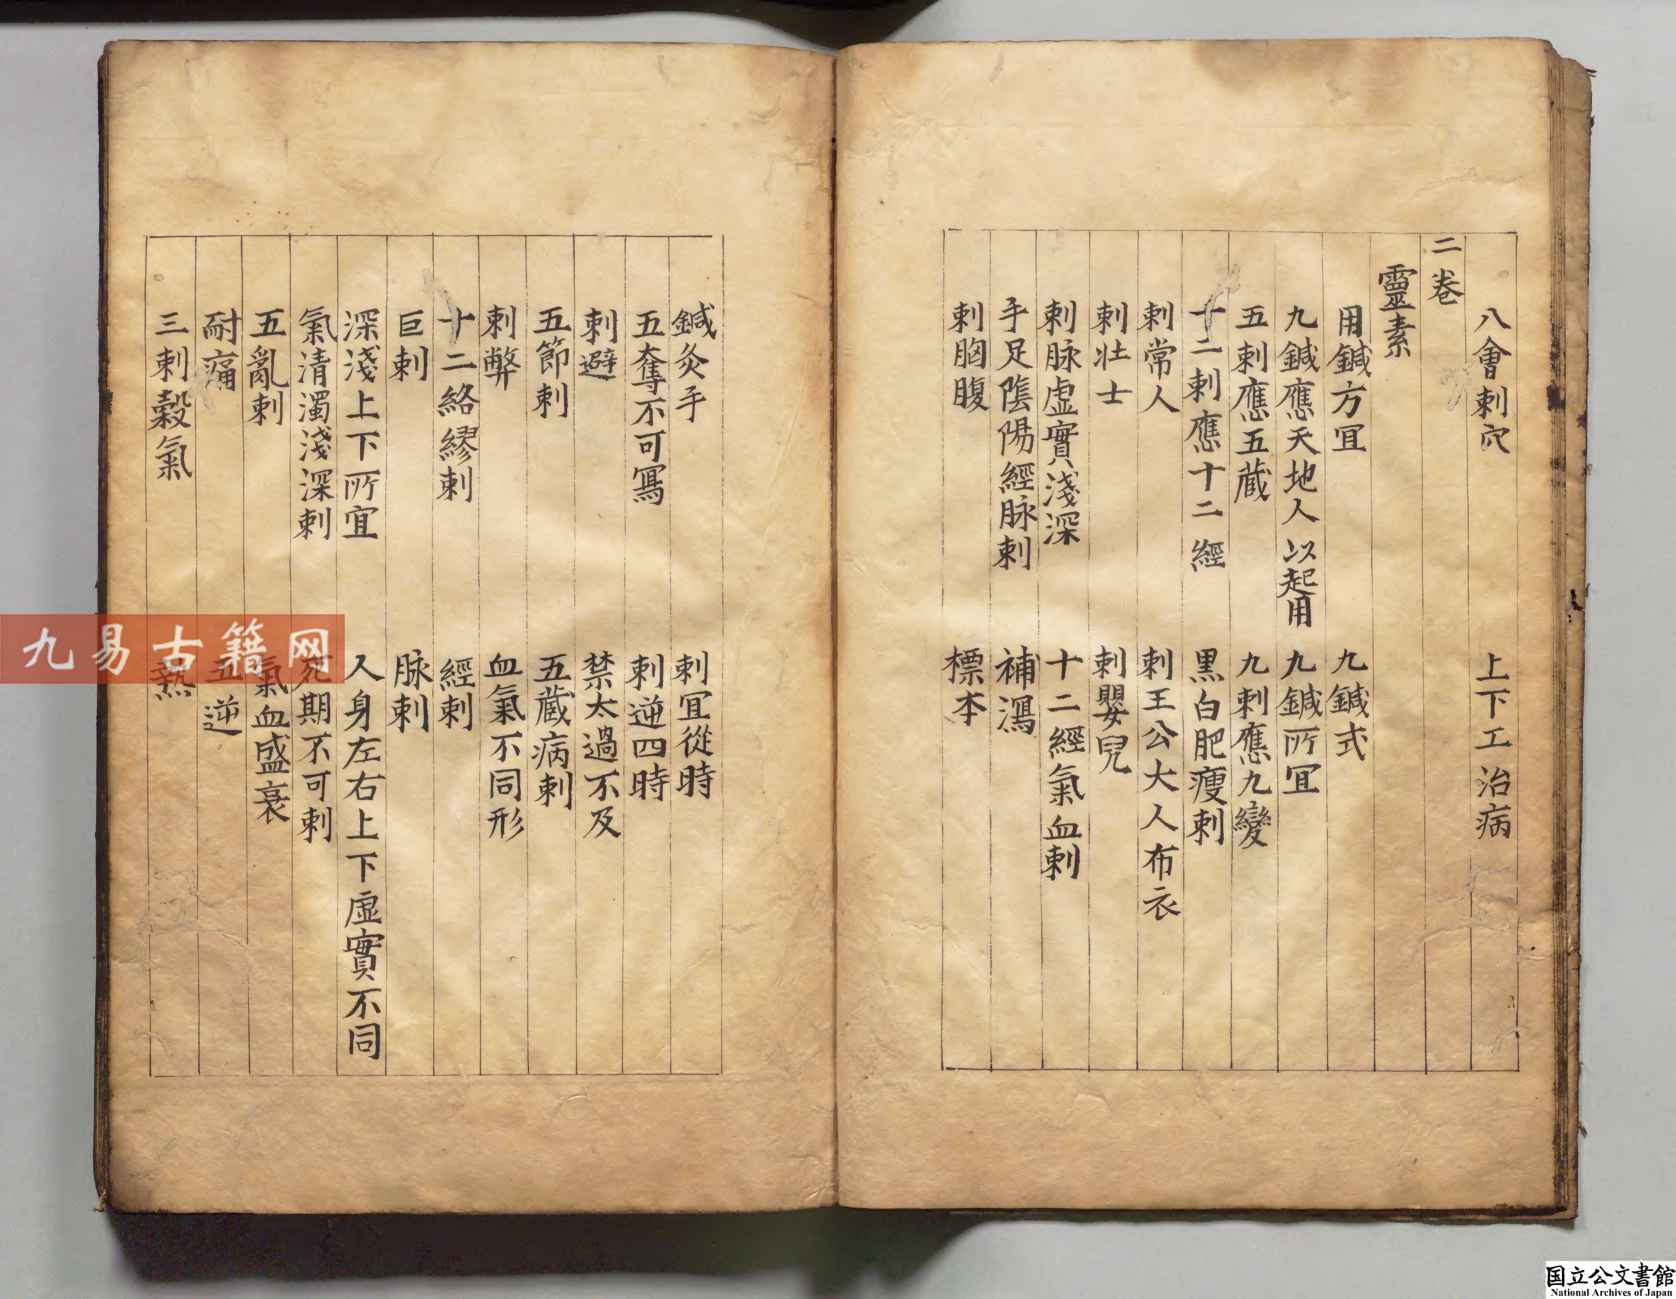 八會刺穴　上下工治病
二卷
靈素
用鍼方冝　九鍼式
九鍼應天地人以起用　九鍼所冝
五刺應五藏　九刺應九變
十二刺應十二經　黑白肥瘦刺
刺常人　刺王公大人布衣
刺壯士　刺嬰兒
刺脉虛實淺深　十二經氣血刺
手足隂陽經脉刺　補瀉
刺胸腹　標本
鍼灸手　刺冝從時
五奪不可寫　刺逆四時
刺避　禁太過不及
五節刺　五藏病刺
刺弊　血氣不同形
十二絡繆刺　經刺
巨刺　脉刺
深淺上下所宜　人身左右上下虛實不同
氣清濁淺深刺　死期不可刺
五亂刺　氣血盛衰
耐痛　五逆
三刺穀氣　熱
九易古籍网
国立公文書館
National Archives of Japan